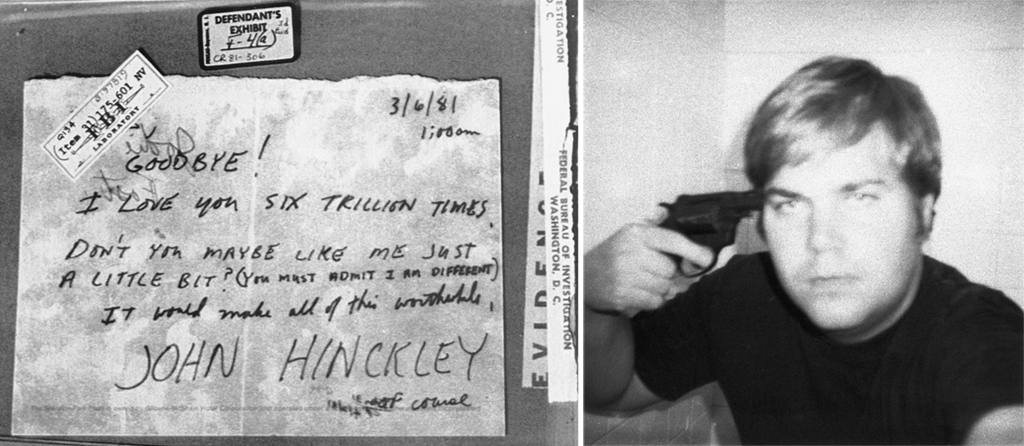 DEFENDANT'S
EXHIBIT
4-4(a)
CR 81-306
(Item 31) 175-601 NV
FBI
LABORATORY
3/6/81
1:00am
GOODBYE!
I LOVE YOU SIX TRILLION TIMES.
DON'T YOU MAYBE LIKE ME JUST
A LITTLE BIT? (YOU MUST ADMIT I AM DIFFERENT)
IT would make all of this worthwhile.
JOHN HINCKLEY
of course
EVIDENCE
FEDERAL BUREAU OF INVESTIGATION
WASHINGTON, D. C.